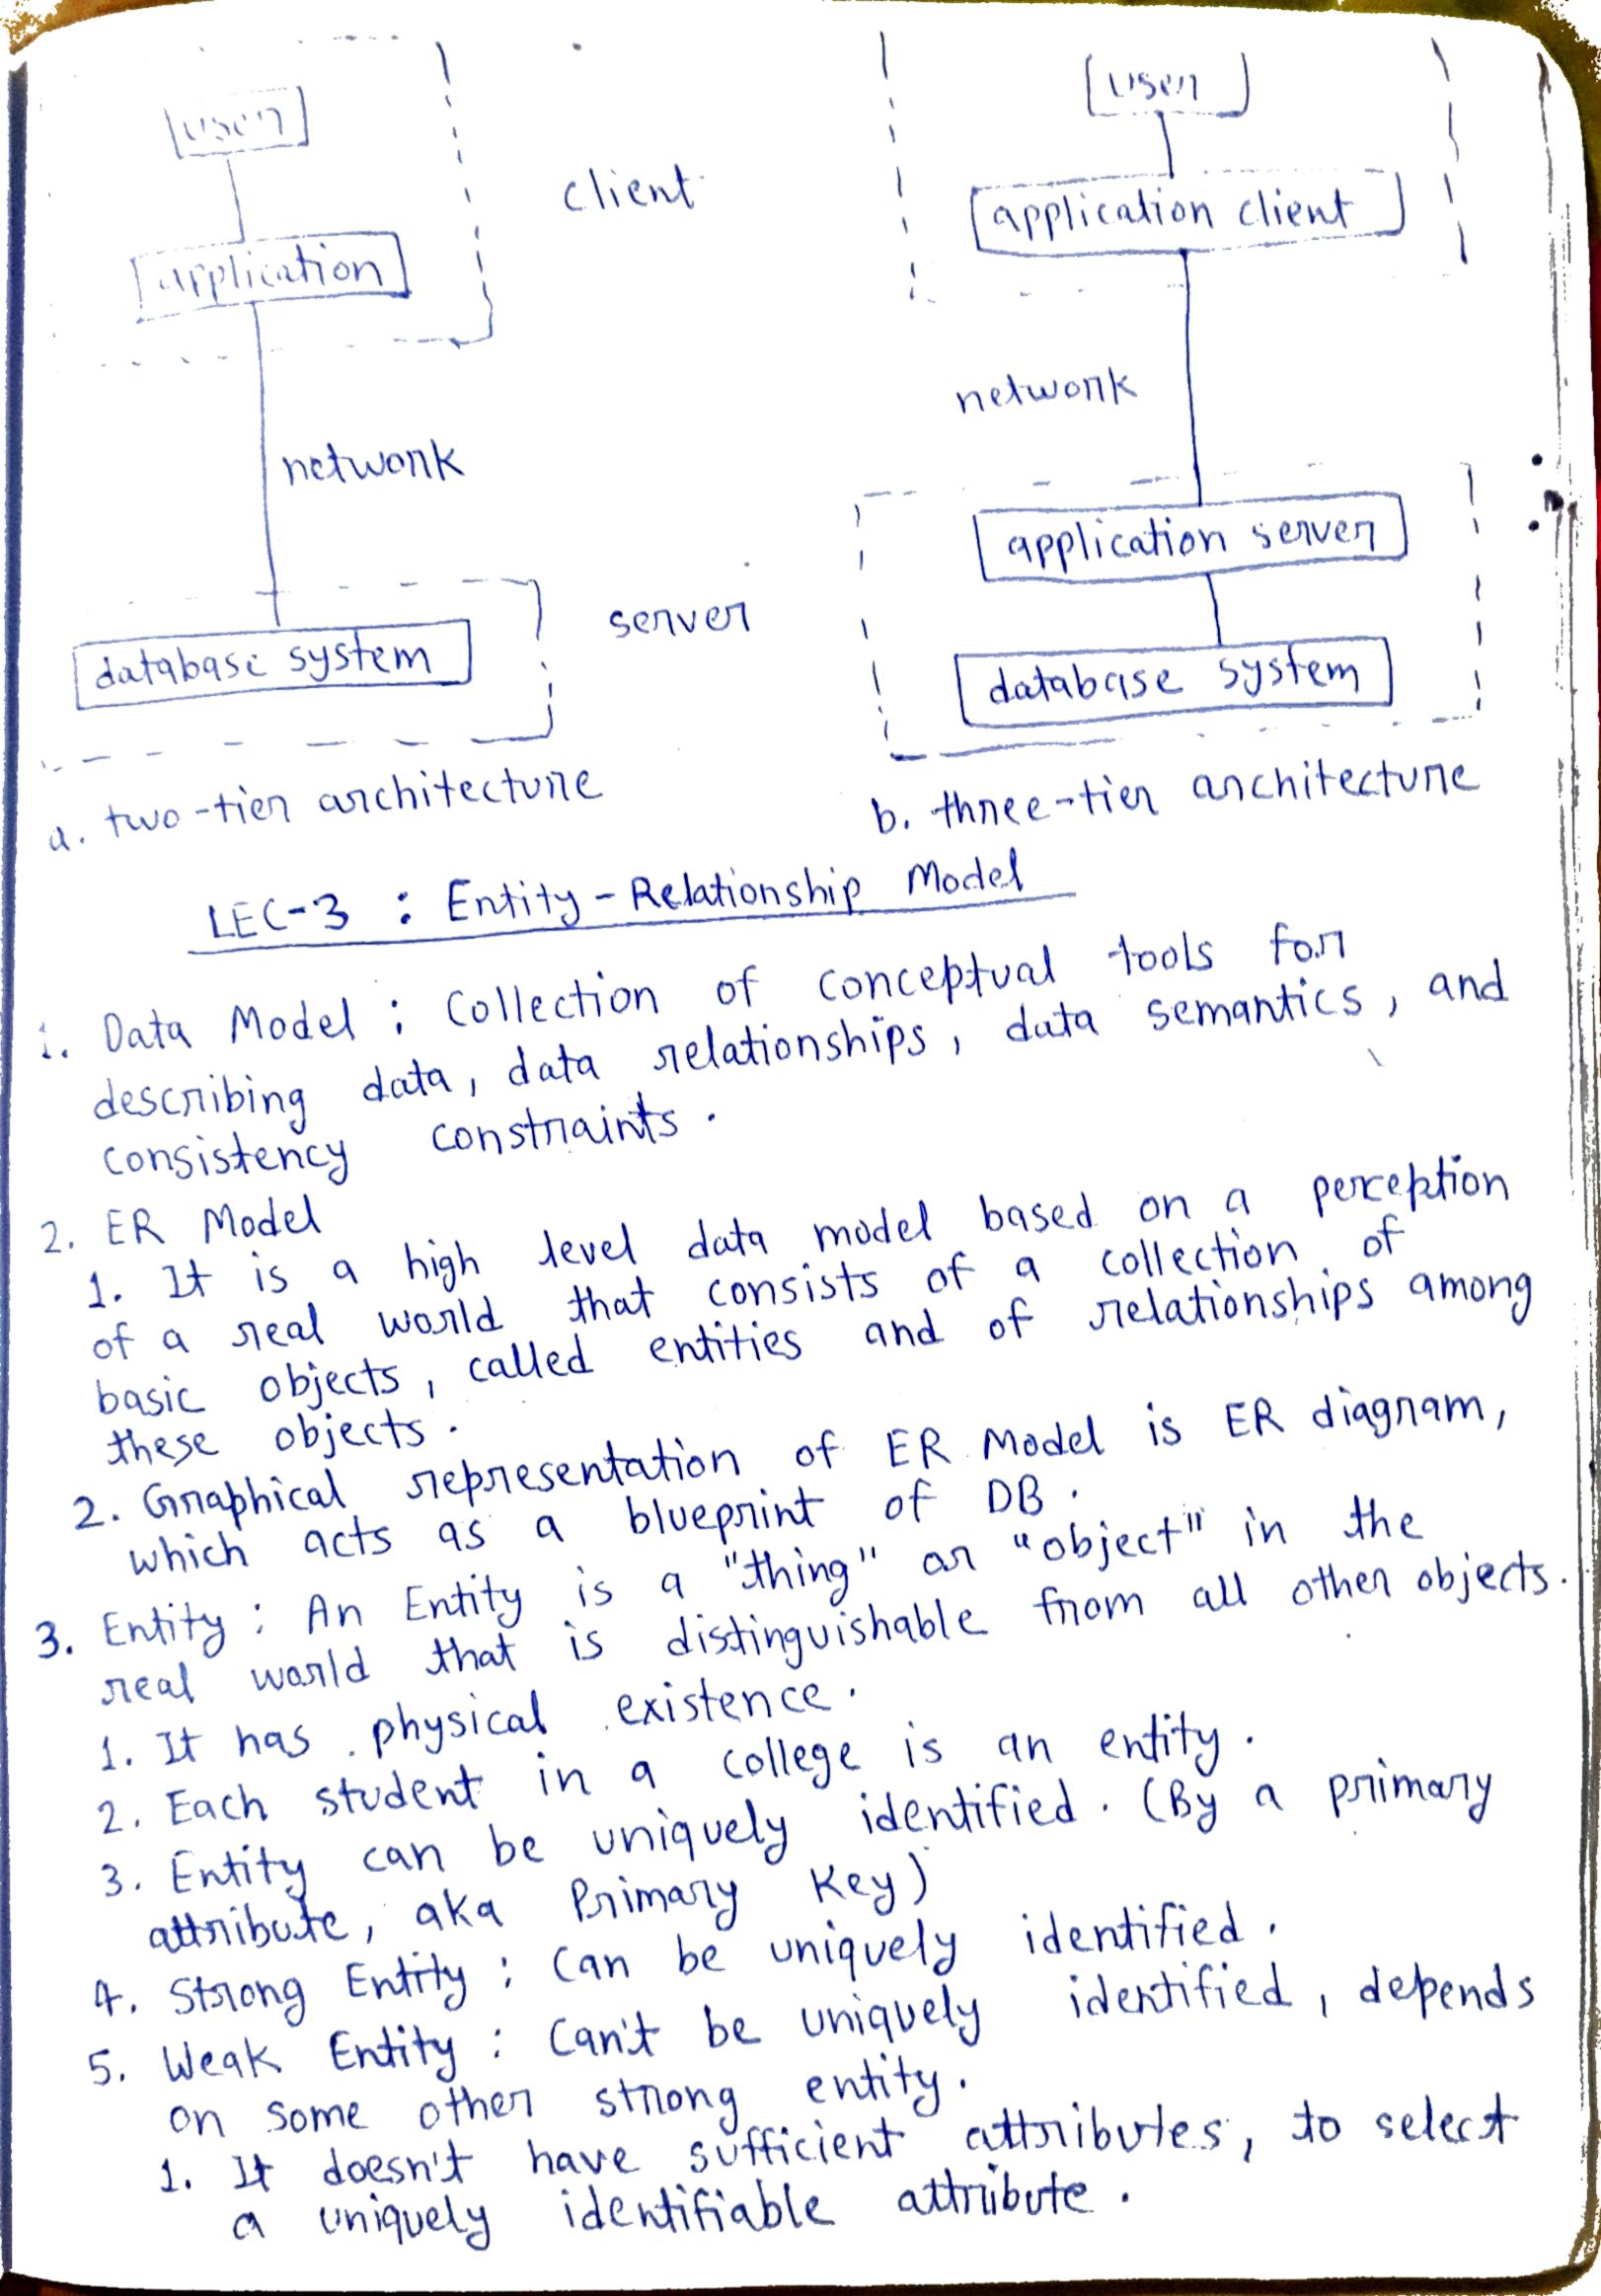 user
application
client
network
database system
server
a. two-tier architecture
user
application client
network
application server
database system
b. three-tier architecture
LEC-3 : Entity-Relationship Model
1. Data Model : Collection of conceptual tools for
describing data, data relationships, data semantics, and
consistency constraints.
2. ER Model
1. It is a high level data model based on a perception
of a real world that consists of a collection of
basic objects, called entities and of relationships among
these objects.
2. Graphical representation of ER Model is ER diagram,
which acts as a blueprint of DB.
3. Entity : An Entity is a "thing" or "object" in the
real world that is distinguishable from all other objects.
1. It has physical existence.
2. Each student in a college is an entity.
3. Entity can be uniquely identified. (By a primary
attribute, aka Primary Key)
4. Strong Entity : Can be uniquely identified.
5. Weak Entity : Can't be uniquely identified, depends
on some other strong entity.
1. It doesn't have sufficient attributes, to select
a uniquely identifiable attribute.